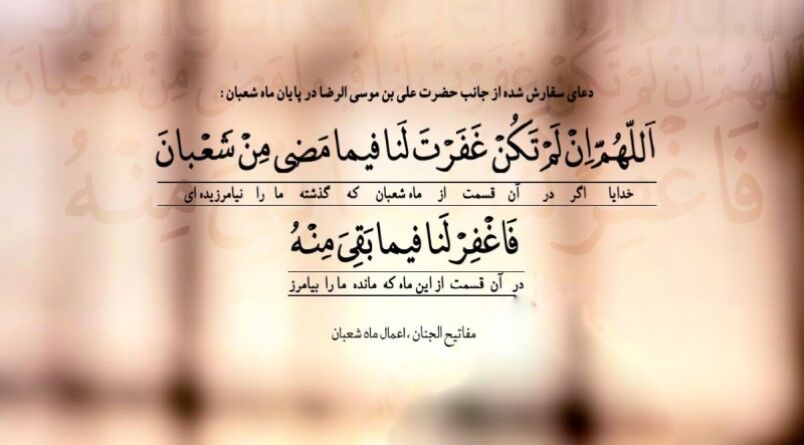 دعای سفارش شده از جانب حضرت علی بن موسی الرضا در پایان ماه شعبان :
اَللّهُمَّ اِنْ لَمْ تَکُنْ غَفَرْتَ لَنا فیما مَضی مِنْ شَعْبانَ
خدایا اگر در آن قسمت از ماه شعبان که گذشته ما را نیامرزیده ای
فَاغْفِرْ لَنا فیما بَقِیَ مِنْهُ
در آن قسمت از این ماه که مانده ما را بیامرز
مفاتیح الجنان ، اعمال ماه شعبان